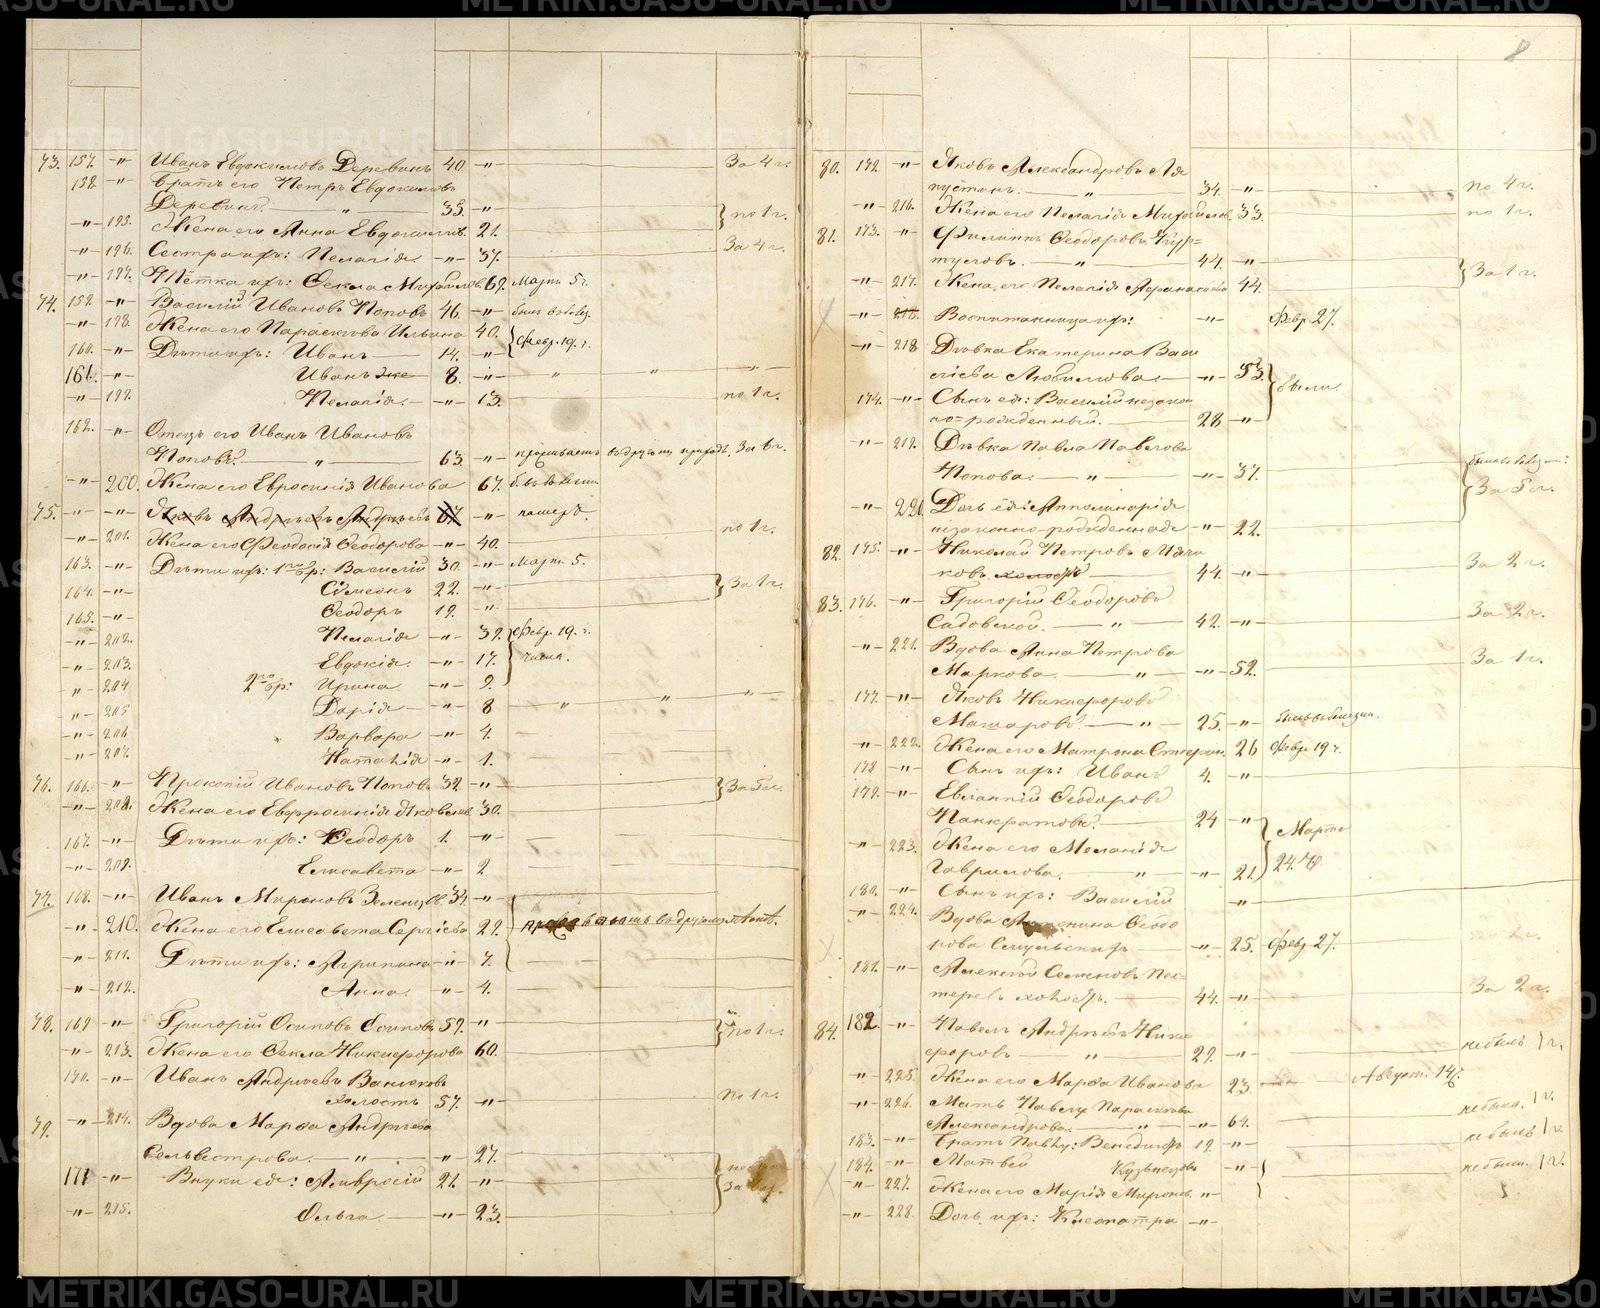 METRIKI.GASO-URAL.RU
8
73. 157. -"- Иванъ Евдокимовъ Деревинъ 40. -"- За 4 г.
158. -"- Братъ его Петръ Евдокимовъ
Деревинъ. " 35. -"-
-"- 195. Жена его Анна Евдокимов. 21. по 1 г.
-"- 196. Сестра ихъ: Пелагія -"- 37. За 4 г.
-"- 197. Тётка ихъ: Ѳекла Михайлов. 69. Март. 5 г.
74. 159. -"- Василій Ивановъ Поповъ 46. -"-
-"- 198. Жена его Параскева Ильина 40. Февр. 19. г.
160. -"- Дѣти ихъ: Иванъ 14. -"-
161. -"- Иванъ же 8. -"- " " -"-
-"- 199. Пелагія. -"- 13. по 1 г.
162. -"- Отецъ его Иванъ Ивановъ
Поповъ. " 63. -"- проживаетъ въ другомъ приходѣ. За 6 г.
-"- 200. Жена его Евросинія Иванова 67.
75. -"- -"- Яковъ Андреевъ Андреевъ 67 -"- померъ.
-"- 201. Жена его Ѳеодосія Ѳеодорова -"- 40. по 1 г.
163. -"- Дѣти ихъ: 1го бр: Василій 30. -"- Март. 5.
164. -"- Симеонъ 22. -"- За 1 г.
165. -"- Ѳеодоръ 19. -"-
-"- 202. Пелагія -"- 32. Февр. 19. г.
-"- 203. Евдокія. -"- 17. числа.
" 204 2го бр: Ирина. -"- 9.
" 205 Дарія -"- 8 " " "
-"- 206 Варвара -"- 4.
-"- 207. Наталія -"- 1.
76. 166. " Прокопій Ивановъ Поповъ 32. -"- За 5 г.
-"- 208. Жена его Евфросинія Яковлев. 30.
167. -"- Дѣти ихъ: Ѳеодоръ 1. -"-
-"- 209. Елисавета -"- 2
77. 168. -"- Иванъ Мироновъ Зеленцовъ 34. -"-
-"- 210. Жена его Елисавета Сергіева 29. въ другомъ
-"- 211. Дѣти ихъ: Агрипина -"- 7.
-"- 212. Анна. -"- 4.
78. 169 -"- Григорій Осиповъ Осиповъ 59. -"- по 1 г.
-"- 213. Жена его Ѳекла Никифорова 60.
170. -"- Иванъ Андреевъ Ванюковъ
холостъ 57. -"- по 1 г.
79. -"- 214. Вдова Марѳа Андреева
Сельвестрова. " " 27.
171 -"- Внуки ея: Амвросій 21. -"-
-"- 215. Ольга. -"- 23.
80. 172. -"- Яковъ Александровъ Ля
пустинъ. " 34. -"- по 4 г.
-"- 216. Жена его Пелагія Михайлов. 33. по 1 г.
81. 173. -"- Филиппъ Ѳеодоровъ Кур=
туговъ. " 44. -"-
-"- 217. Жена его Пелагія Аѳанасьева 44. За 1 г.
-"- Воспитанница ихъ: -"- Февр. 27.
-"- 218 Дѣвка Екатерина Васи
лиева Любимова. -"- 53. были.
174. -"- Сынъ ея: Василій незакон
но=рожденный. 28 -"-
-"- 219. Дѣвка Павла Павлова
Попова. " -"- 37.
-"- 220. Дочь ея: Апполинарія
незаконно-рожденная -"- 22. За 5 г.
82. 175. -"- Николай Петровъ Мячи
ковъ холостъ 44. -"- За 2 г.
83. 176. -"- Григорій Ѳеодоровъ
Садовской. " 42. -"- За 2 г.
-"- 221. Вдова Анна Петрова
Маркова. " -"- 52. За 1 г.
177. -"- Яковъ Никифоровъ
Макаровъ. " 25. -"-
-"- 222. Жена его Матрона Стефан. 26 Февр. 19 г.
178 -"- Сынъ ихъ: Иванъ 4. -"-
179. -"- Евлампій Ѳеодоровъ
Панкратовъ. 24 -"- Марта
-"- 223. Жена его Меланія
Гаврилова. " -"- 21. 24.
180. -"- Сынъ ихъ: Василій -"-
-"- 224. Вдова Ѳеодо
рова -"- 25. Февр. 27.
181. -"- Алексѣй Семеновъ Пес
теревъ холостъ. 44. -"- За 2 г.
84. 182 -"- Павелъ Андреевъ Ники
форовъ " 29. -"- не былъ 1 г.
-"- 225 Жена его Марѳа Иванова 23. Август. 14.
-"- 226. Мать Павлу Параскева
Александрова. " -"- 64. не была. 1 г.
183. -"- Братъ Павлу: Бенедиктъ 19. -"- не былъ 1 г.
184. -"- Матвей Кузнецовъ -"- не были. 1 г.
-"- 227. Жена его Марія Миронов. -"-
-"- 228. Дочь ихъ: Клеопатра -"-